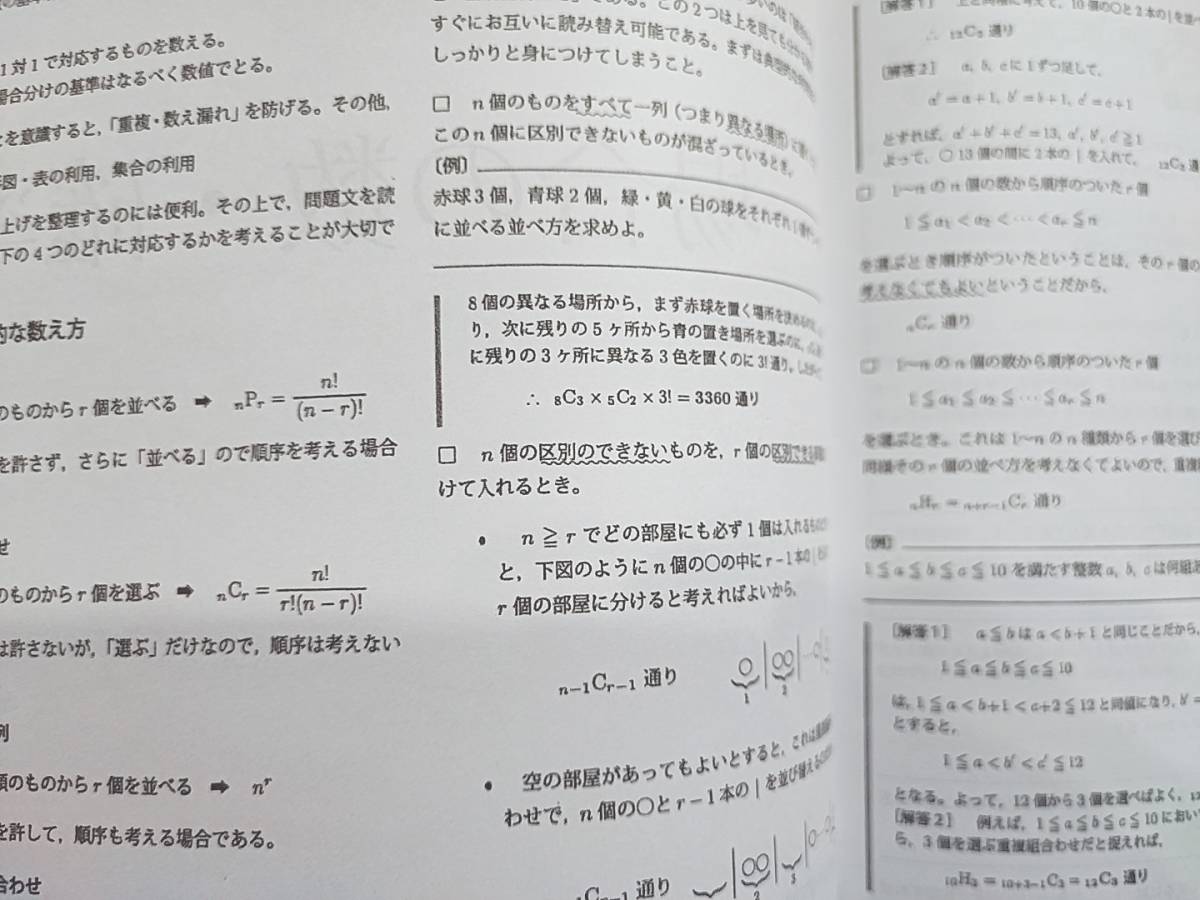 1対1で対応するものを数える。
場合分けの基準はなるべく数値でとる。
を意識すると，「重複・数え漏れ」を防げる。その他，
図・表の利用，集合の利用
上げを整理するのには便利。その上で，問題文を読
下の4つのどれに対応するかを考えることが大切で
的な数え方
のものからr個を並べる ➡ nPr = n!/(n−r)!
を許さず，さらに「並べる」ので順序を考える場合
せ
のものからr個を選ぶ ➡ nCr = n!/r!(n−r)!
は許さないが，「選ぶ」だけなので，順序は考えない
列
類のものからr個を並べる ➡ n^r
を許して，順序も考える場合である。
合わせ
この2つは上を見ても
すぐにお互いに読み替え可能である。まずは典型的
しっかりと身につけてしまうこと。
□ n個のものをすべて一列（つまり異なる場所）に
このn個に区別できないものが混ざっているとき。
〔例〕
赤球3個，青球2個，緑・黄・白の球をそれぞれ1
に並べる並べ方を求めよ。
8個の異なる場所から，まず赤球を置く場所を決める
り，次に残りの5ヶ所から青の置き場所を選ぶのに，
に残りの3ヶ所に異なる3色を置くのに3!通り。
∴ 8C3 × 5C2 × 3! = 3360 通り
□ n個の区別のできないものを，r個の区別できる
けて入れるとき。
• n ≧ r でどの部屋にも必ず1個は入れるもの
と，下図のようにn個の○の中にr−1本の|
r個の部屋に分けると考えればよいから，
n−1Cr−1 通り ○|○○|
1 2
• 空の部屋があってもよいとすると，これは
わせで，n個の○とr−1本の|を並び替えるの
Cn−1 通り |○○| |○
2 3
［解答1］ 10個の○と2本の|を
∴ 12C2 通り
［解答2］ a, b, cに1ずつ足して，
a′=a+1, b′=b+1, c′=c+1
とすれば，a′+b′+c′=13, a′, b′, c′≧1
よって，○13個の間に2本の|を入れて， 12C2 通
□ 1〜nのn個の数から順序のついたr個
1≦a1<a2<⋯<ar≦n
を選ぶとき順序がついたということは，そのr個の
考えなくてもよいということだから，
nCr 通り
□ 1〜nのn個の数から順序のついたr個
1≦a1≦a2≦⋯≦ar≦n
を選ぶとき。これは1〜nのn種類からr個を選び
同様そのn個の並べ方を考えなくてよいので，重複
nHr = n+r−1Cr 通り
〔例〕
1≦a≦b≦c≦10を満たす整数a, b, cは何組あ
［解答1］ a≦bはa<b+1と同じことだから，
1≦a≦b≦c≦10
は，1≦a<b+1<c+2≦12と同値になり，b′=
とすると，
1≦a<b′<c′≦12
となる。よって，12個から3個を選べばよく，12
［解答2］ 例えば，1≦a≦b≦c≦10におい
ら，3個を選ぶ重複組合わせだと捉えれば，
10H3 = 10+3−1C3 = 12C3 通り